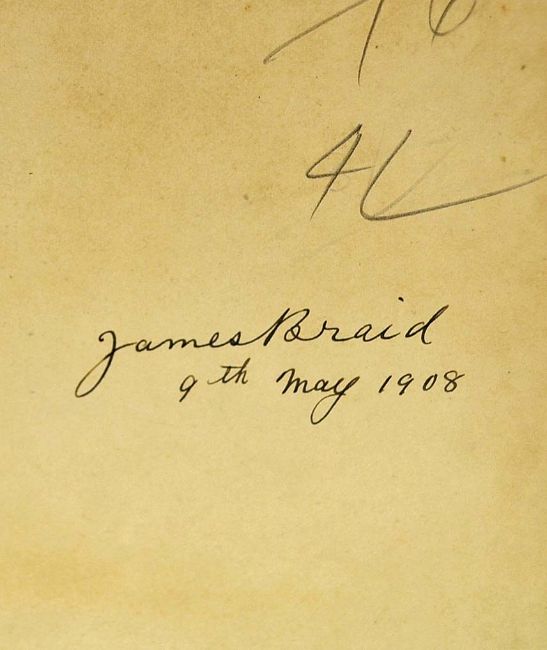 James Braid
9th May 1908